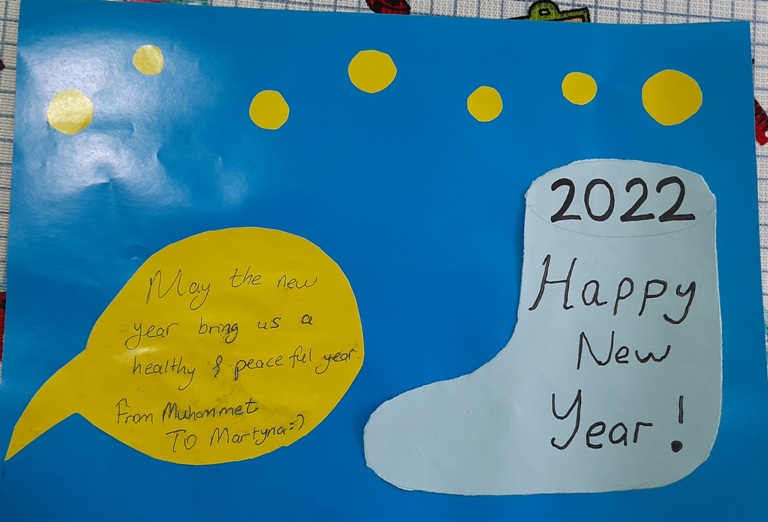 May the new
year bring us a
healthy & peaceful year.
From Muhammet
To Martyna=)
2022
Happy
New
Year!